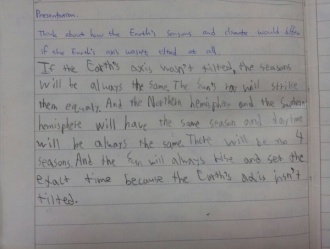 Presentation.
Think about how the Earth's seasons and climate would differ
if the Earth's axis wasn't tilted at all.
If the Earth's axis wasn't tilted, the seasons
will be always the same. The Sun's ray will strike
them equally. And the Northern hemisphere and the Southern
hemisphere will have the same season and daytime
will be always the same. There will be no 4
seasons. And the Sun will always rise and set the
exact time because the Earth's axis isn't
tilted.